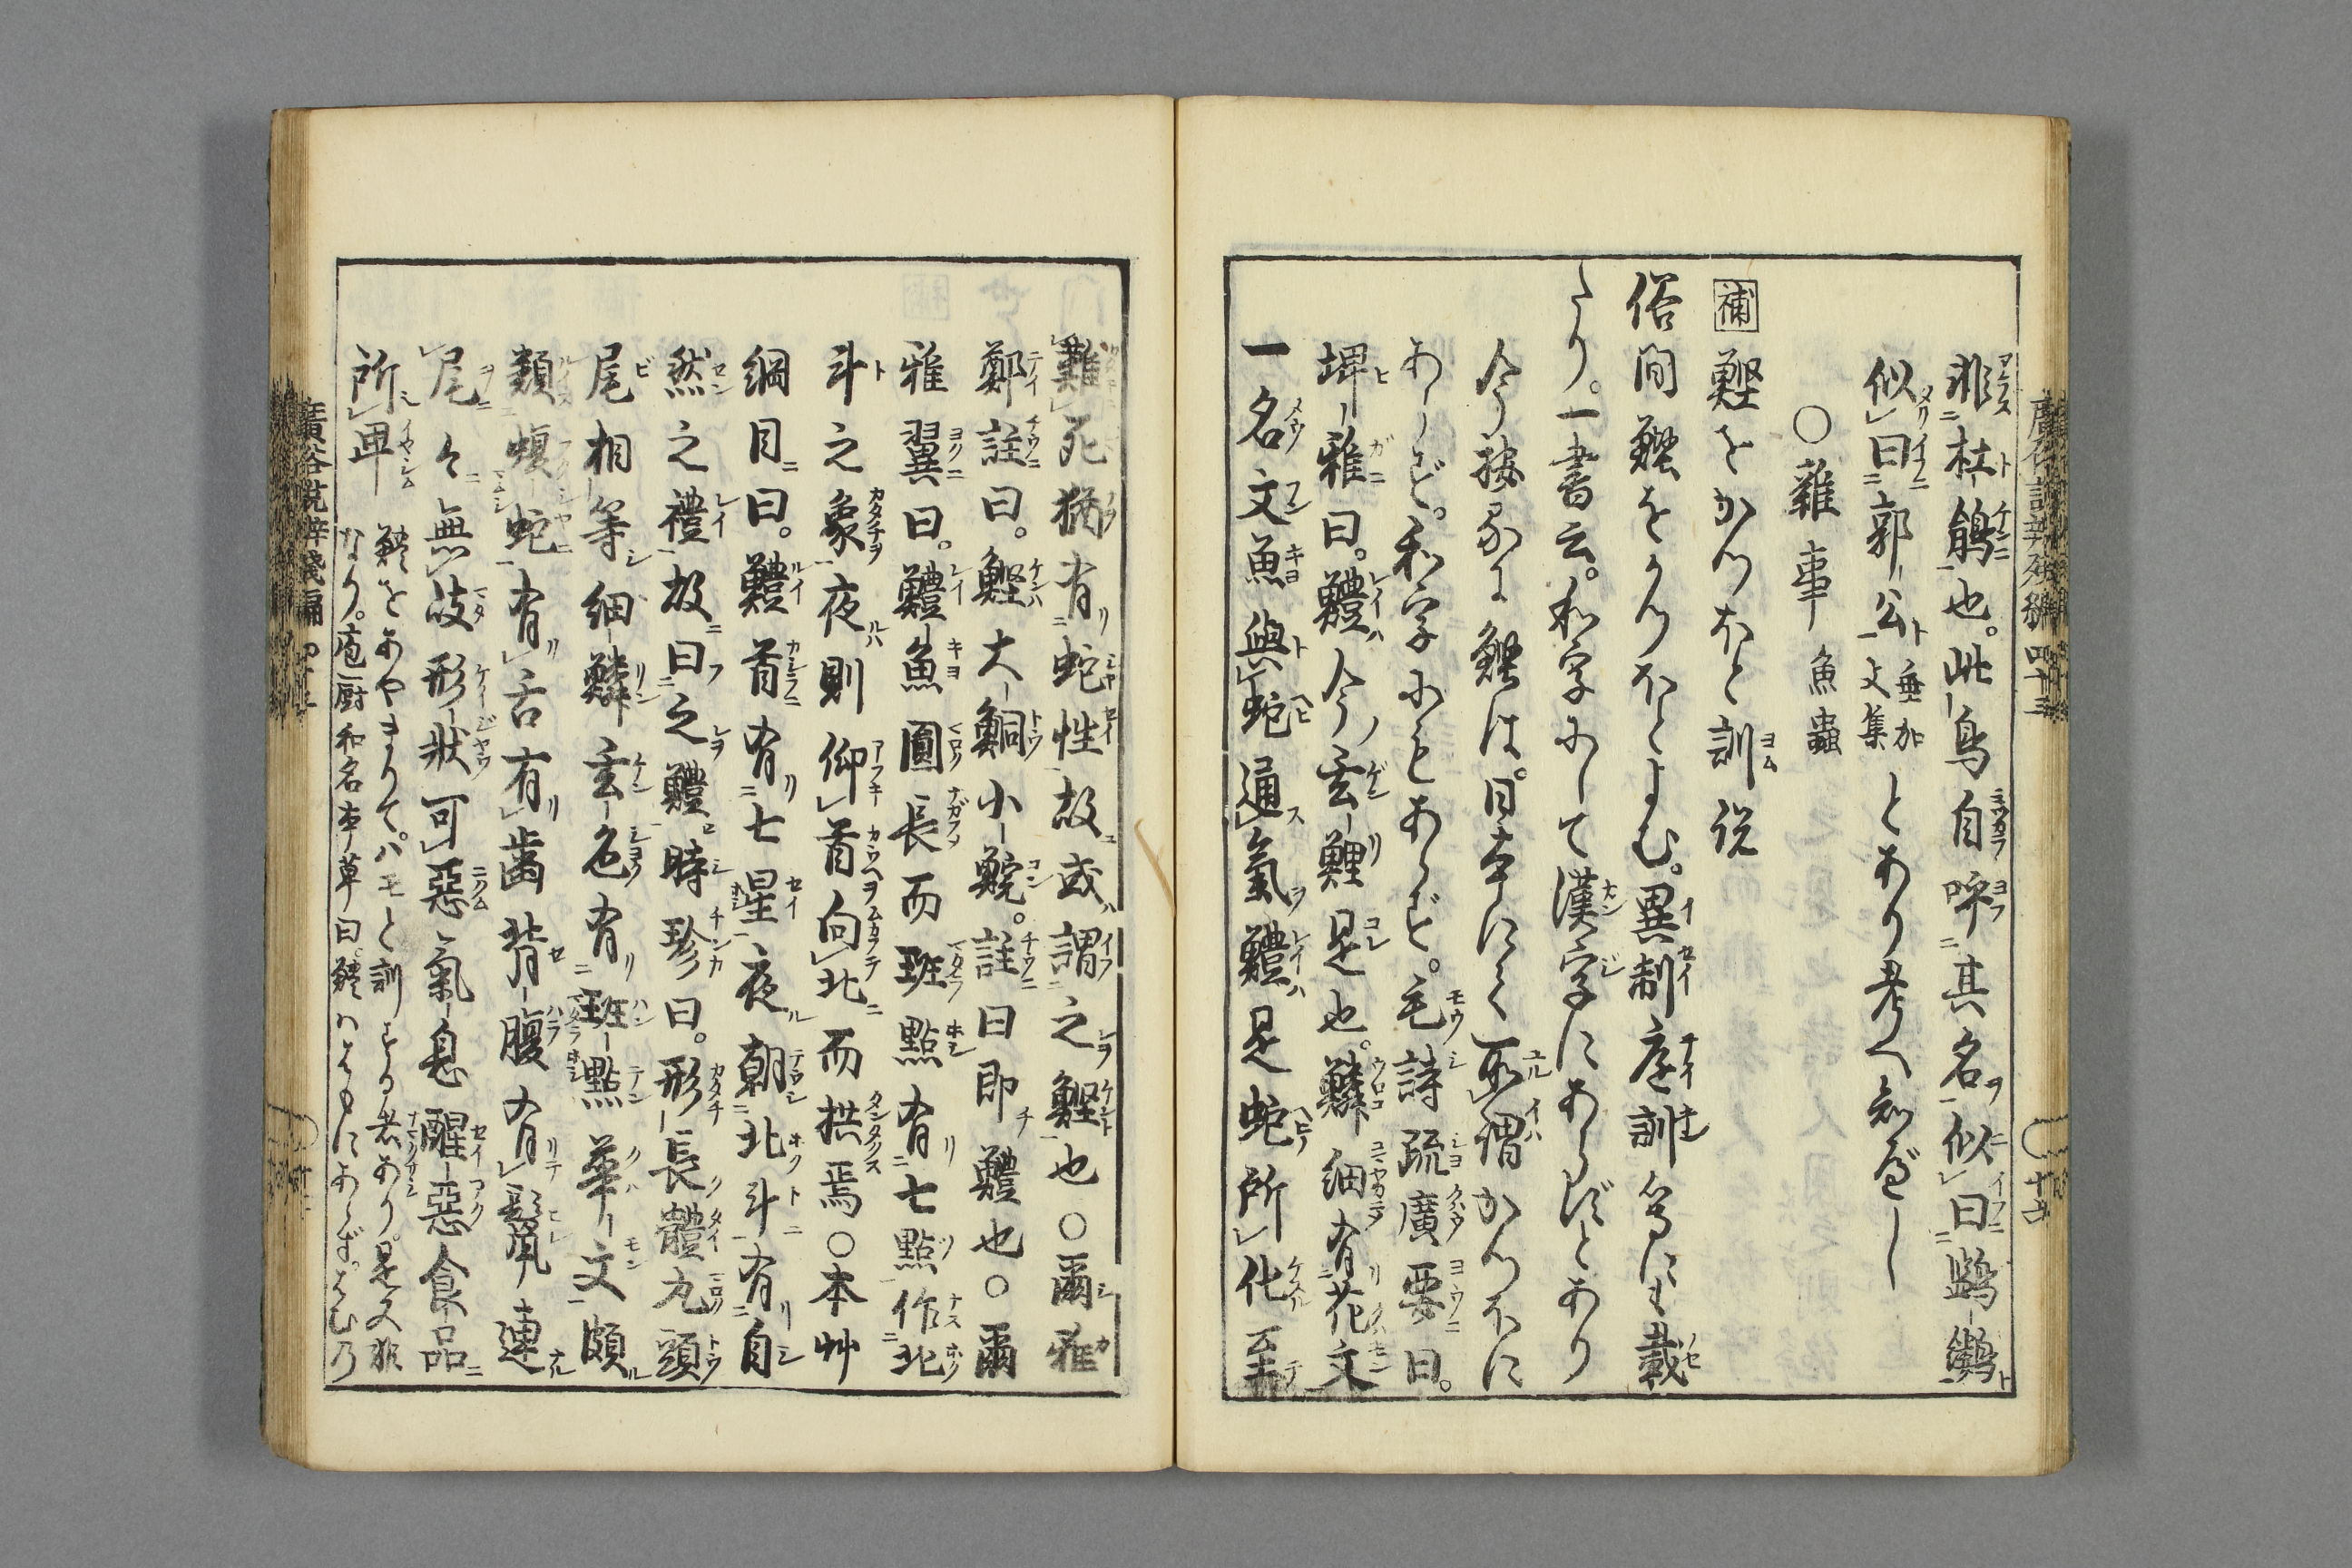 非杜鵑也。此鳥自呼其名似曰鷓鴣
似曰郭公 垂加文集 とあり考へ知べし
○雜事 魚蟲
補 鰹をかつおと訓説
俗間鰹をかつおとよむ。異制庭訓等にも載
たり。一書云。和字にして漢字にあらずとあり
今按るに鰹は。日本にて所謂かつおに
あらず。和字にもあらず。毛詩疏廣要曰。
埤雅曰。鱧今玄鯉是也。鱗細有花文
一名文魚與蛇通氣鱧是蛇所化至
難死猶有蛇性故或謂之鰹也○爾雅
鄭註曰。鰹大鮦小鯇。註曰即鱧也○爾
雅翼曰。鱧魚圓長而斑點有七點作北
斗之象夜則仰首向北而拱焉○本艸
綱目曰。鱧首有七星夜朝北斗有自
然之禮故曰之鱧時珍曰。形長體九頭
尾相等細鱗玄色有斑點華文頗
類蝮蛇有舌有齒背腹有鬣連
尾々無歧形狀可惡氣息腥惡食品
所卑 鱧をあやまりて。ハモと訓ずる者あり。是又非
なり。庖厨和名本草曰。鱧ははもにあらず。はむ乃